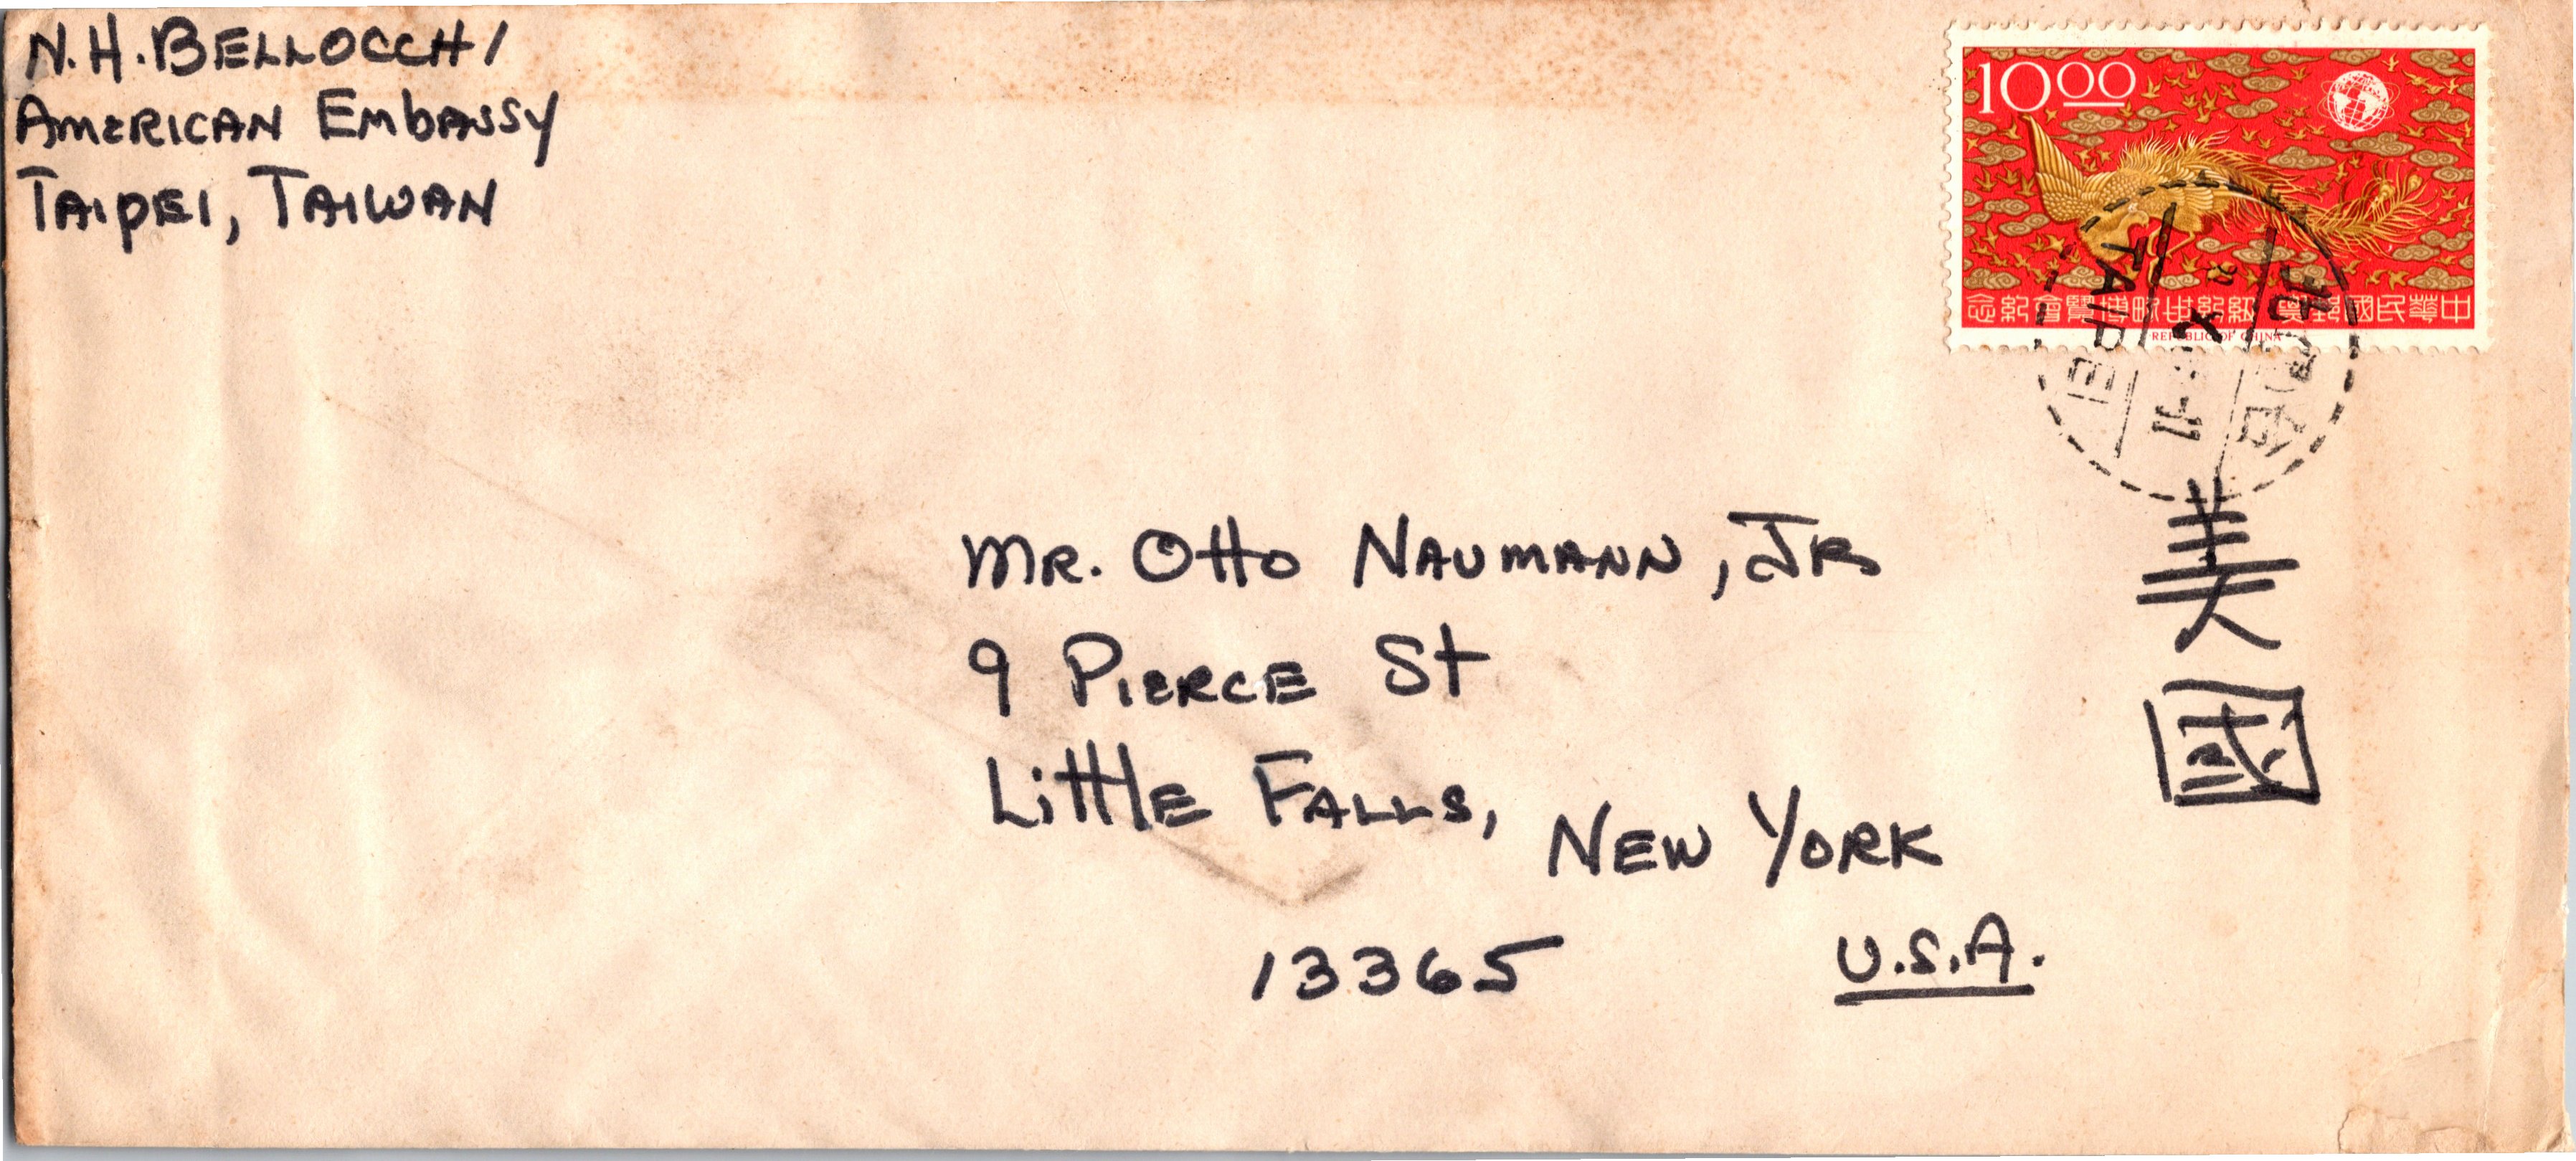 N.H. BELLOCCHI
AMERICAN EMBASSY
TAIPEI, TAIWAN
10.00
念紀會覽博
國民華中
REPUBLIC OF CHINA
TAIPEI
MR. OTTO NAUMANN, JR
9 PIERCE ST
LITTLE FALLS, NEW YORK
13365 U.S.A.
美國